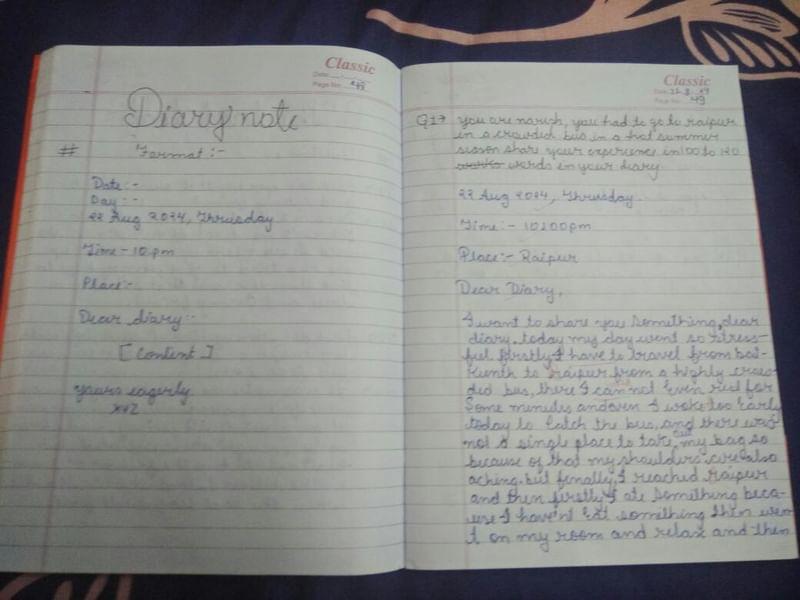 Classic
Date
Page No.
Diary note
# Format :-
Date :-
Day :-
22 Aug 2024, Thrusday
Time - 10 pm
Place:-
Dear diary:-
[Content]
yours eagerly
xyz
Classic
Date
Page No. 49
Q1→ you are narish, you had to go to raipur
in a crowded bus in a hot summer
season share your experience in 100 to 120
words in your diary
22 Aug 2024, Thrusday.
Time :- 10:00 pm
Place:- Raipur
Dear Diary,
I want to share you something, dear
diary. today my day went so stress-
ful. firstly I have to travel from
to raipur from a highly crow-
ded bus, there I can not even rest for
some minutes and I woke too early
today to catch the bus, and there was
not a single place to take my bag so
because of that my shoulders are also
aching. but finally, I reached raipur
and then firstly I ate something beca-
use I haven't eat something then wen
t on my room and relax and then